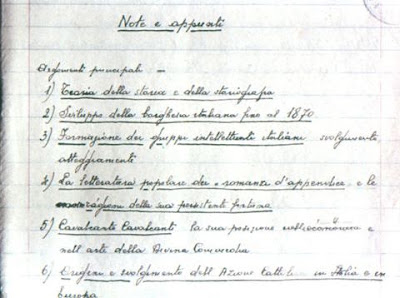 Note e appunti
Argomenti principali: —
1) Teoria della storia e della storiografia
2) Sviluppo della borghesia italiana fino al 1870
3) Formazione dei gruppi intellettuali italiani svolgimento,
atteggiamenti
4) La letteratura popolare dei romanzi d'appendice e le
ragioni della sua persistente fortuna
5) Cavalcante Cavalcanti: la sua posizione nell'economia e
nell'arte della Divina Commedia
6) Origini e svolgimento dell'Azione Cattolica in Italia e in
Europa